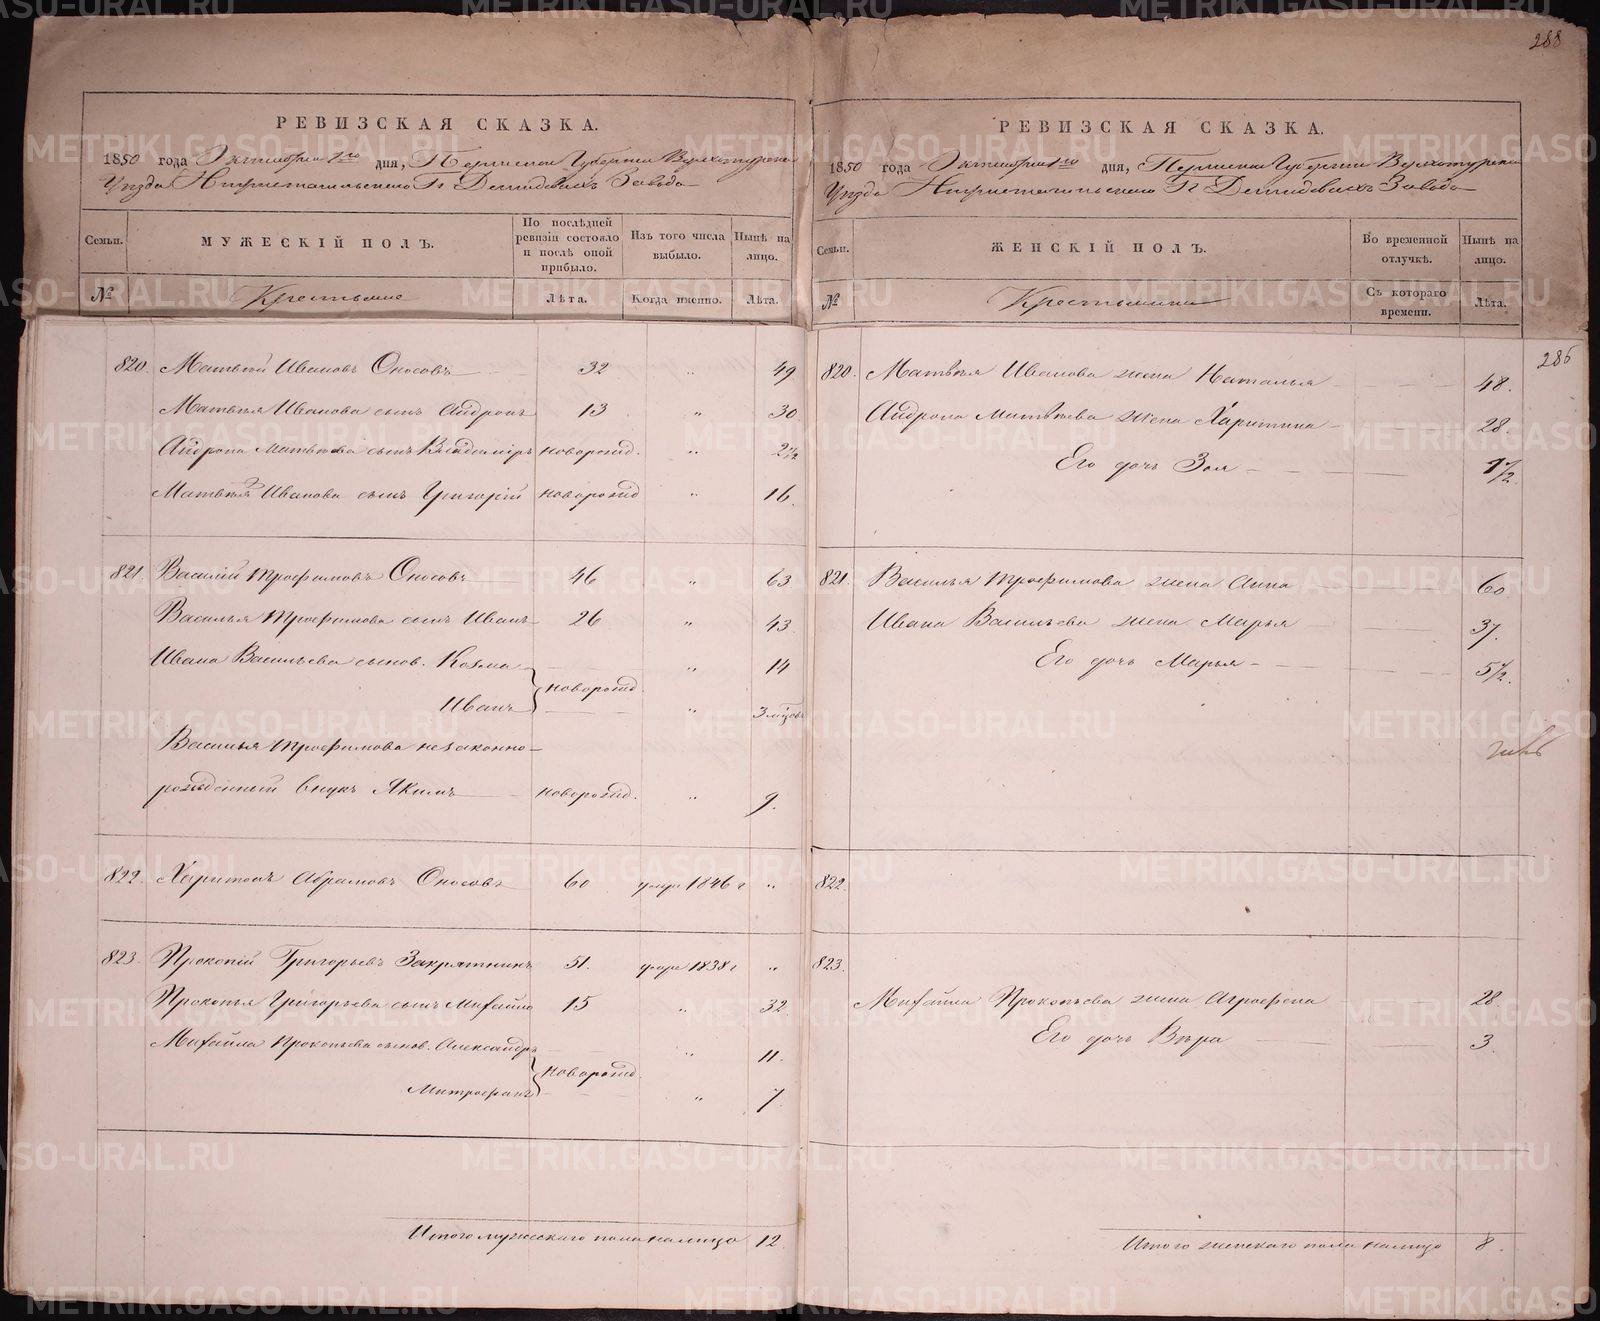 288
РЕВИЗСКАЯ СКАЗКА.
1850 года Октября 1го дня, Пермской Губернии Верхотурскаго
Уезда Нижнетагильскаго Гг Демидовыхъ Завода
Семьи.
МУЖЕСКІЙ ПОЛЪ.
По послѣдней ревизіи состояло и послѣ оной прибыло.
Изъ того числа выбыло.
Нынѣ на лицо.
№
Крестьяне
Лѣта.
Когда именно.
Лѣта.
820. Матвей Ивановъ Оносовъ 32 „ 49
Матвѣя Иванова сынъ Андронъ 13 „ 30
Андрона Матвѣева сынъ Владимiръ новорожд. „ 2½
Матвѣя Иванова сынъ Григорій новорожд „ 16.
821. Василій Трофимовъ Оносовъ 46 „ 63
Василья Трофимова сынъ Иванъ 26 „ 43
Ивана Васильева сынов. Козма „ 14
новорожд.
Иванъ „ 3 мѣсов
Василья Трофимова незаконно-
рожденной внукъ Якимъ новорожд. „ 9.
822. Харитонъ Абрамовъ Оносовъ 60 умре 1846 г „
823. Прокопій Григорьевъ Закрятнинъ 51. умре 1838 г „
Прокопья Григорьева сынъ Михайло 15 „ 32.
Михайла Прокопьева сынов. Александръ „ 11.
новорожд.
Митрофанъ „ 7.
Итого мужескаго пола налицо 12.
РЕВИЗСКАЯ СКАЗКА.
1850 года Октября 1го дня, Пермской Губерніи Верхотурскаго
Уезда Нижнетагильскаго Гг Демидовыхъ Завода
Семьи.
ЖЕНСКІЙ ПОЛЪ.
Во временной отлучкѣ.
Нынѣ на лицо.
№
Крестьянки
Съ котораго времени.
Лѣта.
286
820. Матвѣя Иванова жена Наталья 48.
Андрона Матвѣева жена Харитина 28.
Его дочь Зоя ½.
821. Василья Трофимова жена Анна 60
Ивана Васильева жена Марья 37.
Его дочь Марья 5½.
822.
823.
Михайла Прокопьева жена Агрофена 28.
Его дочь Вѣра 3.
Итого женскаго пола налицо 8.
METRIKI.GASO-URAL.RU